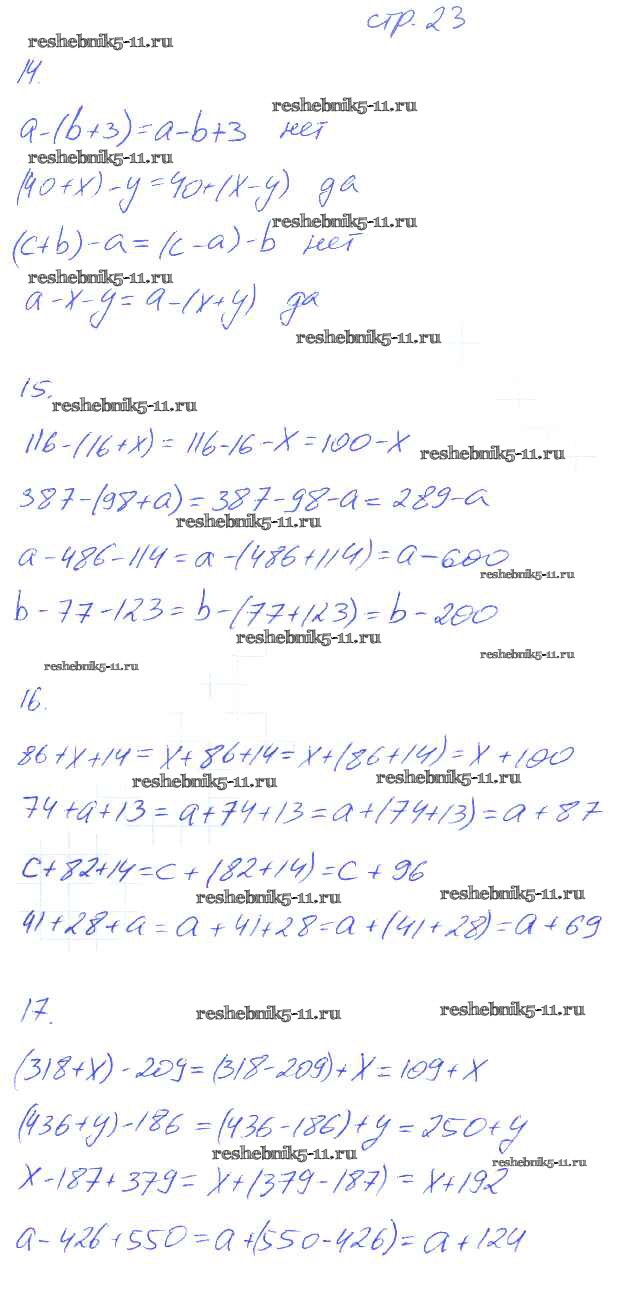 стр. 23
reshebnik5-11.ru
14.
reshebnik5-11.ru
a-(b+3)=a-b+3 нет
reshebnik5-11.ru
(40+x)-y=40+(x-y) да
reshebnik5-11.ru
(c+b)-a=(c-a)-b нет
reshebnik5-11.ru
a-x-y=a-(x+y) да
reshebnik5-11.ru
15.
reshebnik5-11.ru
116-(16+x)=116-16-x=100-x
reshebnik5-11.ru
387-(98+a)=387-98-a=289-a
reshebnik5-11.ru
a-486-114=a-(486+114)=a-600
reshebnik5-11.ru
b-77-123=b-(77+123)=b-200
reshebnik5-11.ru
reshebnik5-11.ru
reshebnik5-11.ru
16.
86+x+14=x+86+14=x+(86+14)=x+100
reshebnik5-11.ru reshebnik5-11.ru
74+a+13=a+74+13=a+(74+13)=a+87
c+82+14=c+(82+14)=c+96
reshebnik5-11.ru reshebnik5-11.ru
41+28+a=a+41+28=a+(41+28)=a+69
17.
reshebnik5-11.ru reshebnik5-11.ru
(318+x)-209=(318-209)+x=109+x
(436+y)-186=(436-186)+y=250+y
reshebnik5-11.ru reshebnik5-11.ru
x-187+379=x+(379-187)=x+192
a-426+550=a+(550-426)=a+124